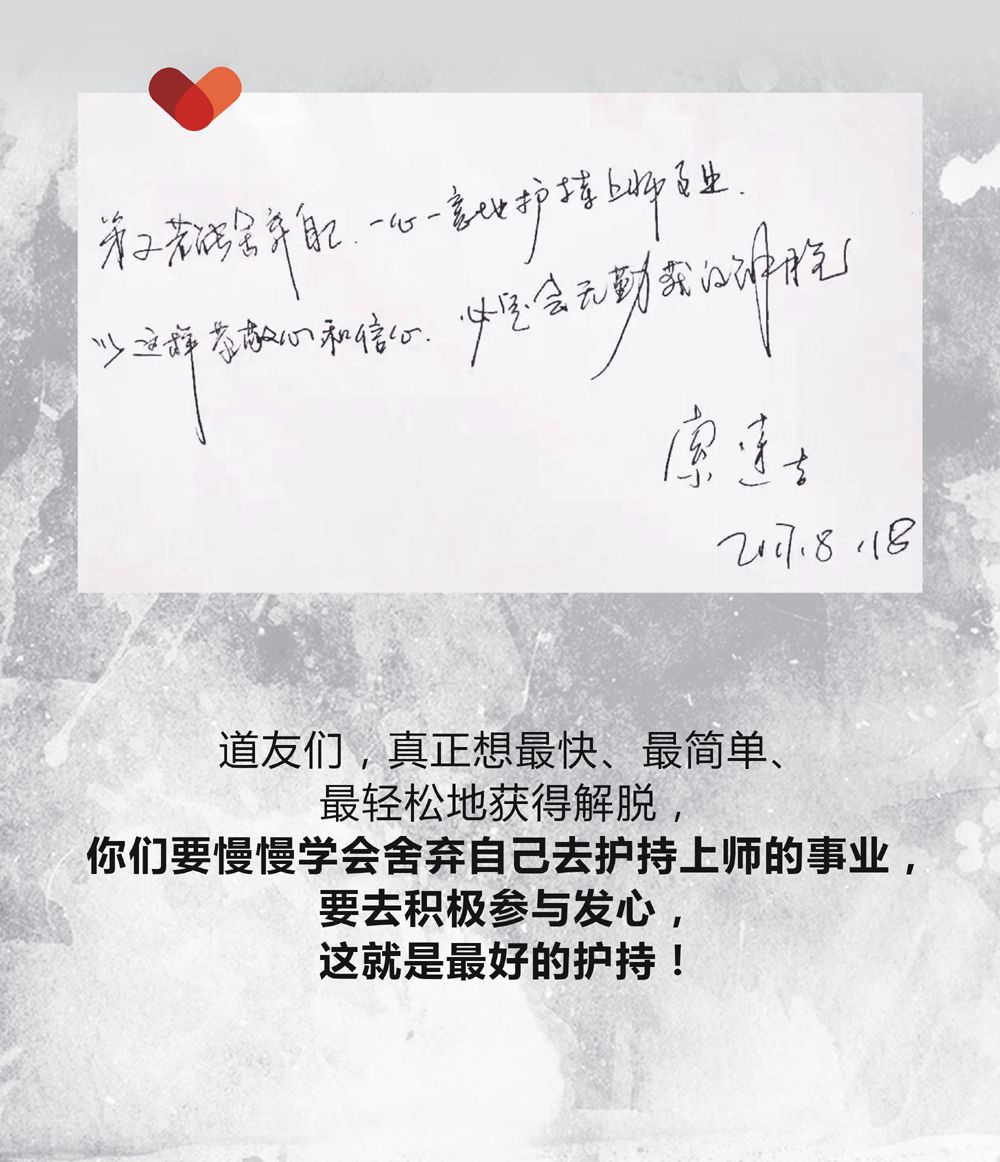 弟子若能舍弃自己.一心一意地护持上师事业.
以这样恭敬心和信心.必定会无勤获的解脱
索达吉
2017.8.18
道友们，真正想最快、最简单、
最轻松地获得解脱，
你们要慢慢学会舍弃自己去护持上师的事业，
要去积极参与发心，
这就是最好的护持！